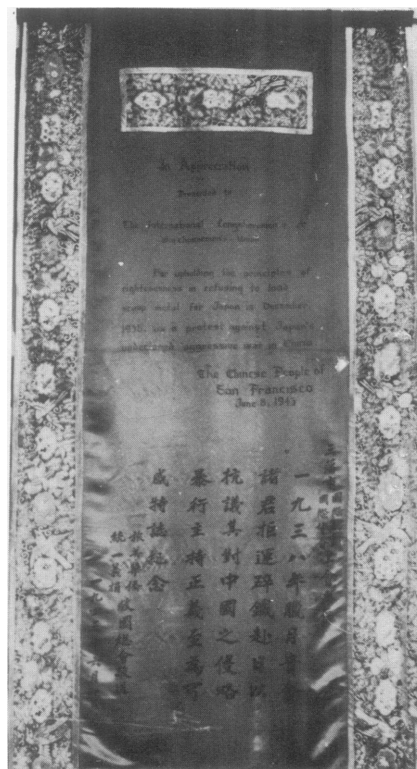 In Appreciation
Presented to
The International Longshoremen's &
Warehousemen's Union
For upholding the principles of
righteousness in refusing to load
scrap metal for Japan in December,
1938, as a protest against Japan's
undeclared aggressive war in China
The Chinese People of
San Francisco
June 8, 1943
一九三八年臘月貴會
諸君拒運碎鐵赴日以
抗議其對中國之侵略
暴行主持正義至為可
感特誌紀念
統一義捐救國總會